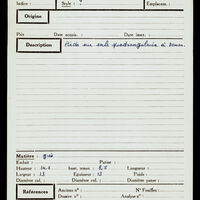 Indice : Style : Emplacem. :
Origine
Prix Date acquis. : Date inv. :
Description
sur socle quadrangulaire à
Matière : grès
Enduit : Patine :
Hauteur : haut. totale : 8,5 Longueur :
Largeur : 13 Epaisseur : 13 Poids :
Diamètre col. : Diamètre panse :
Références
Ancien n° : N° Fouilles :
Dossier n° : Analyse n° :